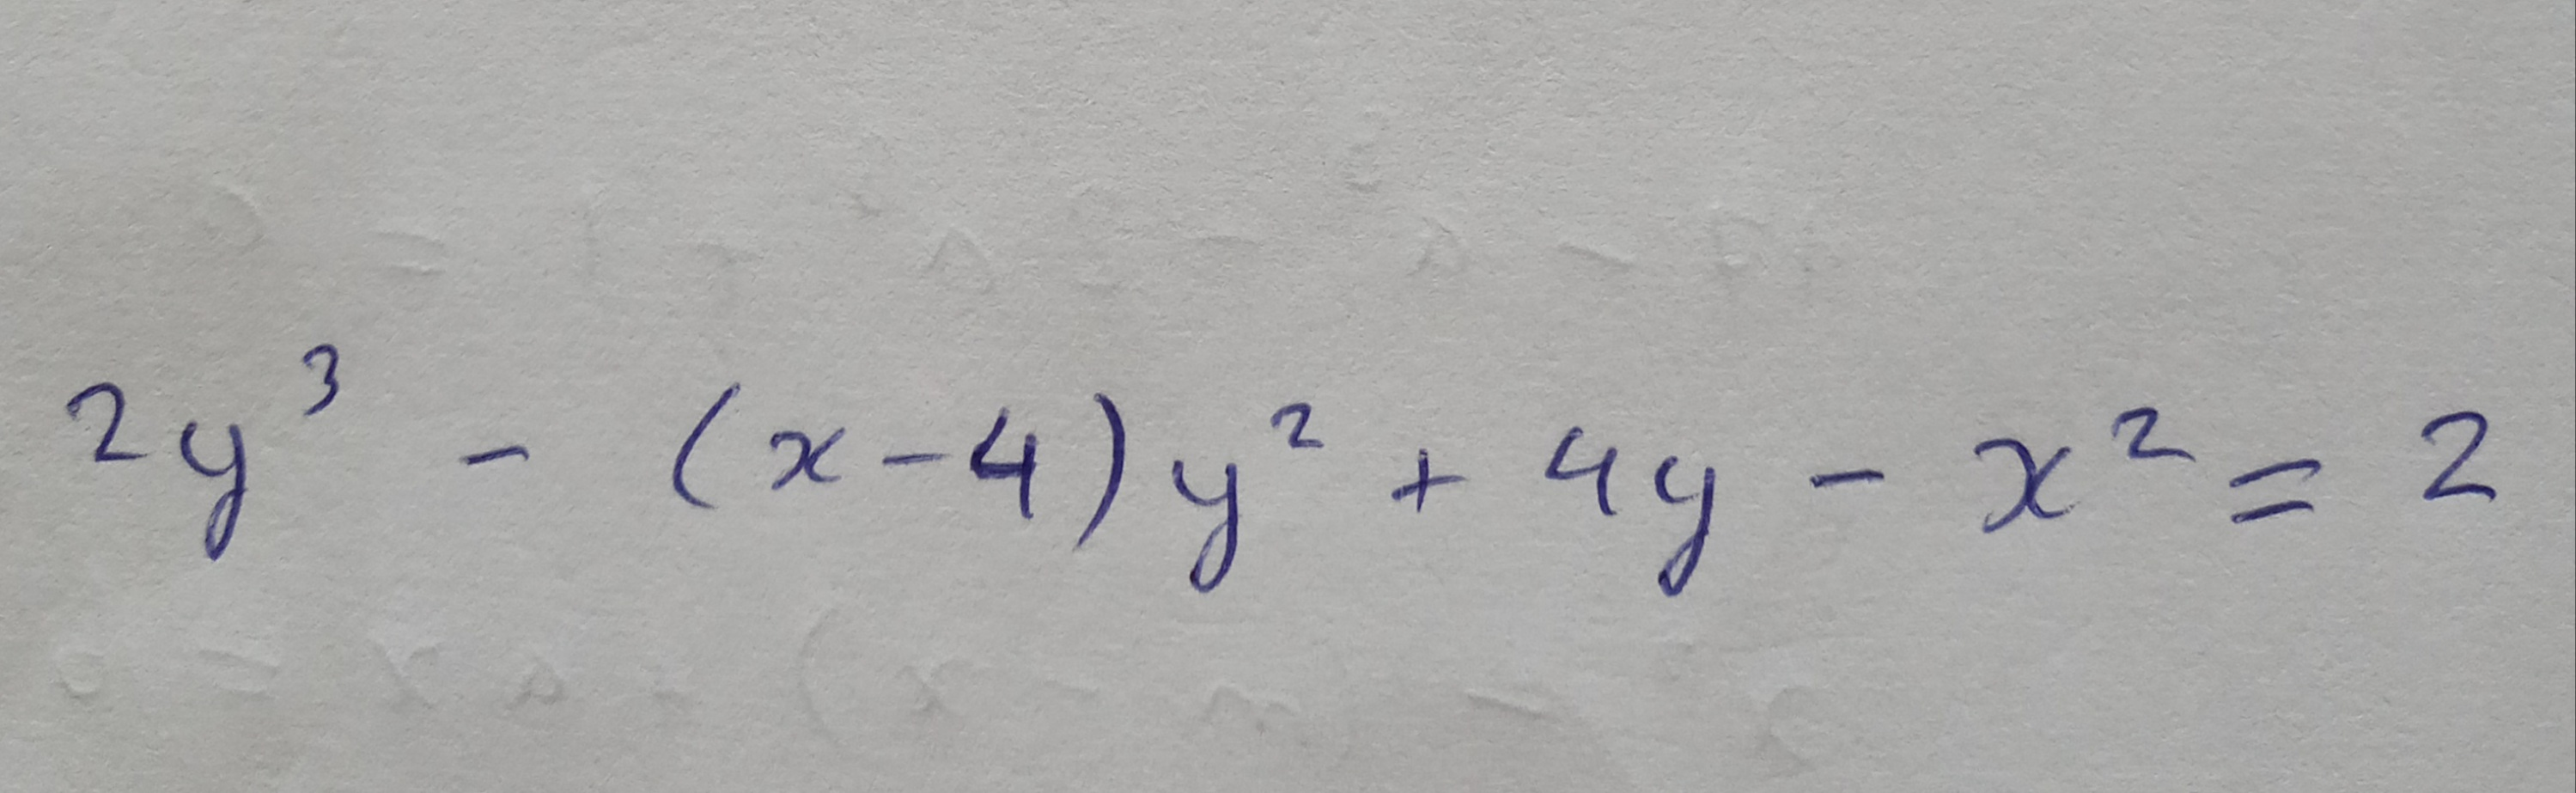 2y³ - (x-4)y² + 4y - x² = 2